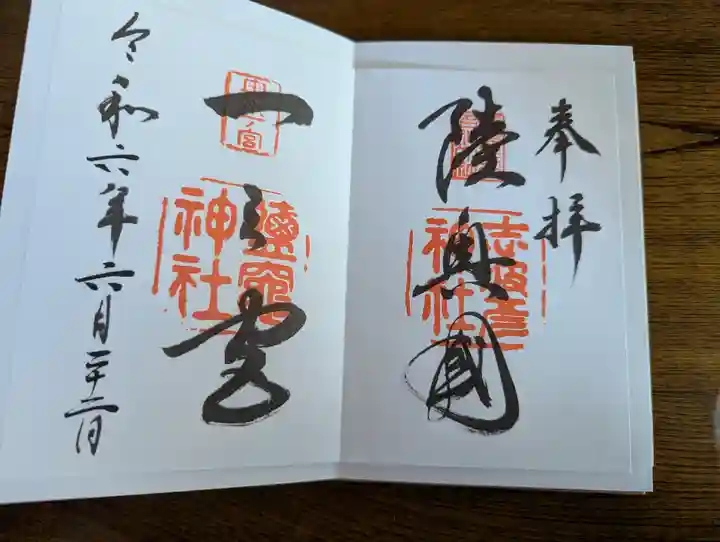 奉拝
陸奥國
志波彦
神社
一之宮
鹽竈
神社
令和六年六月二十二日